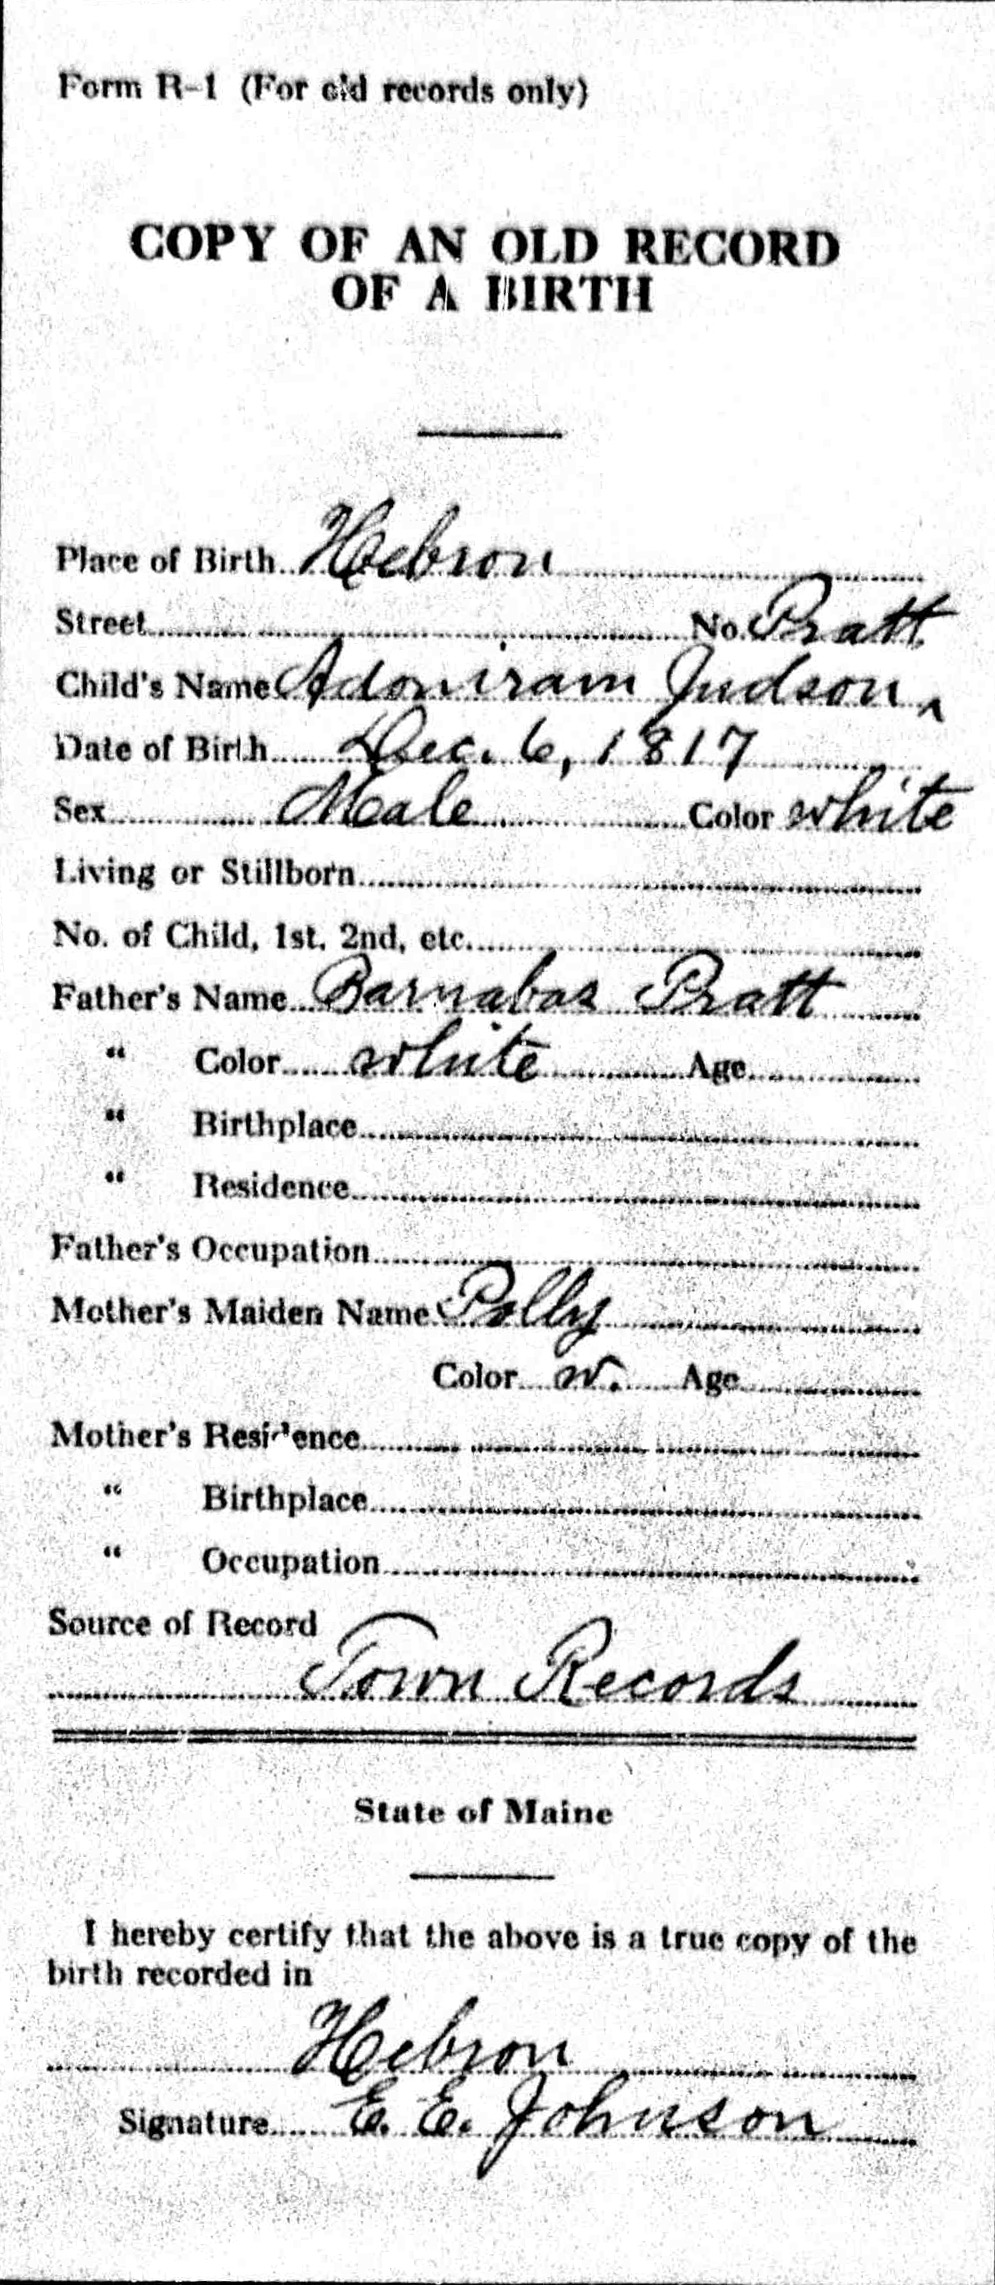 Form R-1 (For old records only)
COPY OF AN OLD RECORD
OF A BIRTH
Place of Birth Hebron
Street No. Pratt
Child's Name Adoniram Judson ^
Date of Birth Dec. 6, 1817
Sex Male Color white
Living or Stillborn
No. of Child, 1st. 2nd, etc.
Father's Name Barnabas Pratt
" Color white Age
" Birthplace
" Residence
Father's Occupation
Mother's Maiden Name Polly
Color w. Age
Mother's Residence
" Birthplace
" Occupation
Source of Record
Town Records
State of Maine
I hereby certify that the above is a true copy of the
birth recorded in
Hebron
Signature E. E. Johnson